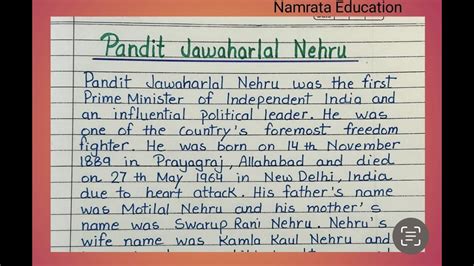 Namrata Education
Pandit Jawaharlal Nehru
Pandit Jawaharlal Nehru was the first
Prime Minister of Independent India and
an influential political leader. He was
one of the country's foremost freedom
fighter. He was born on 14th November
1889 in Prayagraj, Allahabad and died
on 27th May 1964 in New Delhi, India
due to heart attack. His father's name
was Motilal Nehru and his mother's
name was Swarup Rani Nehru. Nehru's
wife name was Kamla Kaul Nehru and